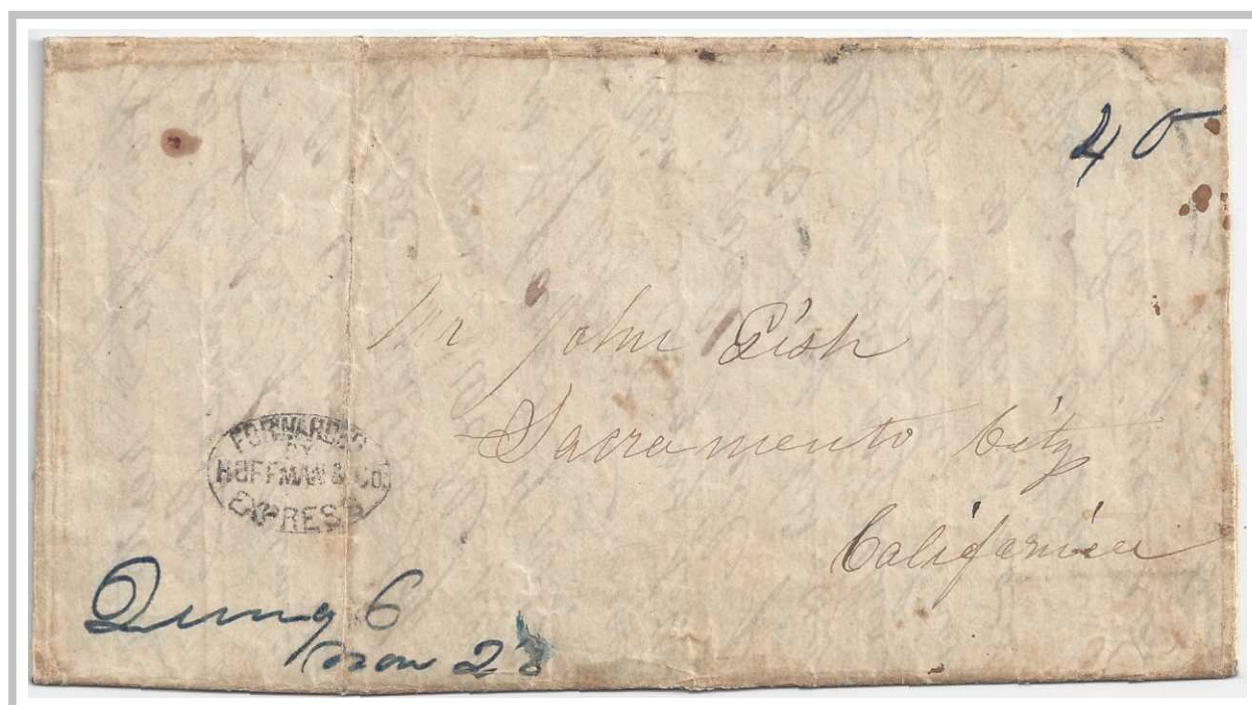 40
Mr John Gish
Sacramento City
California
FORWARDED
BY
HUFFMAN & CO.
EXPRESS
Quincy
Nov 28